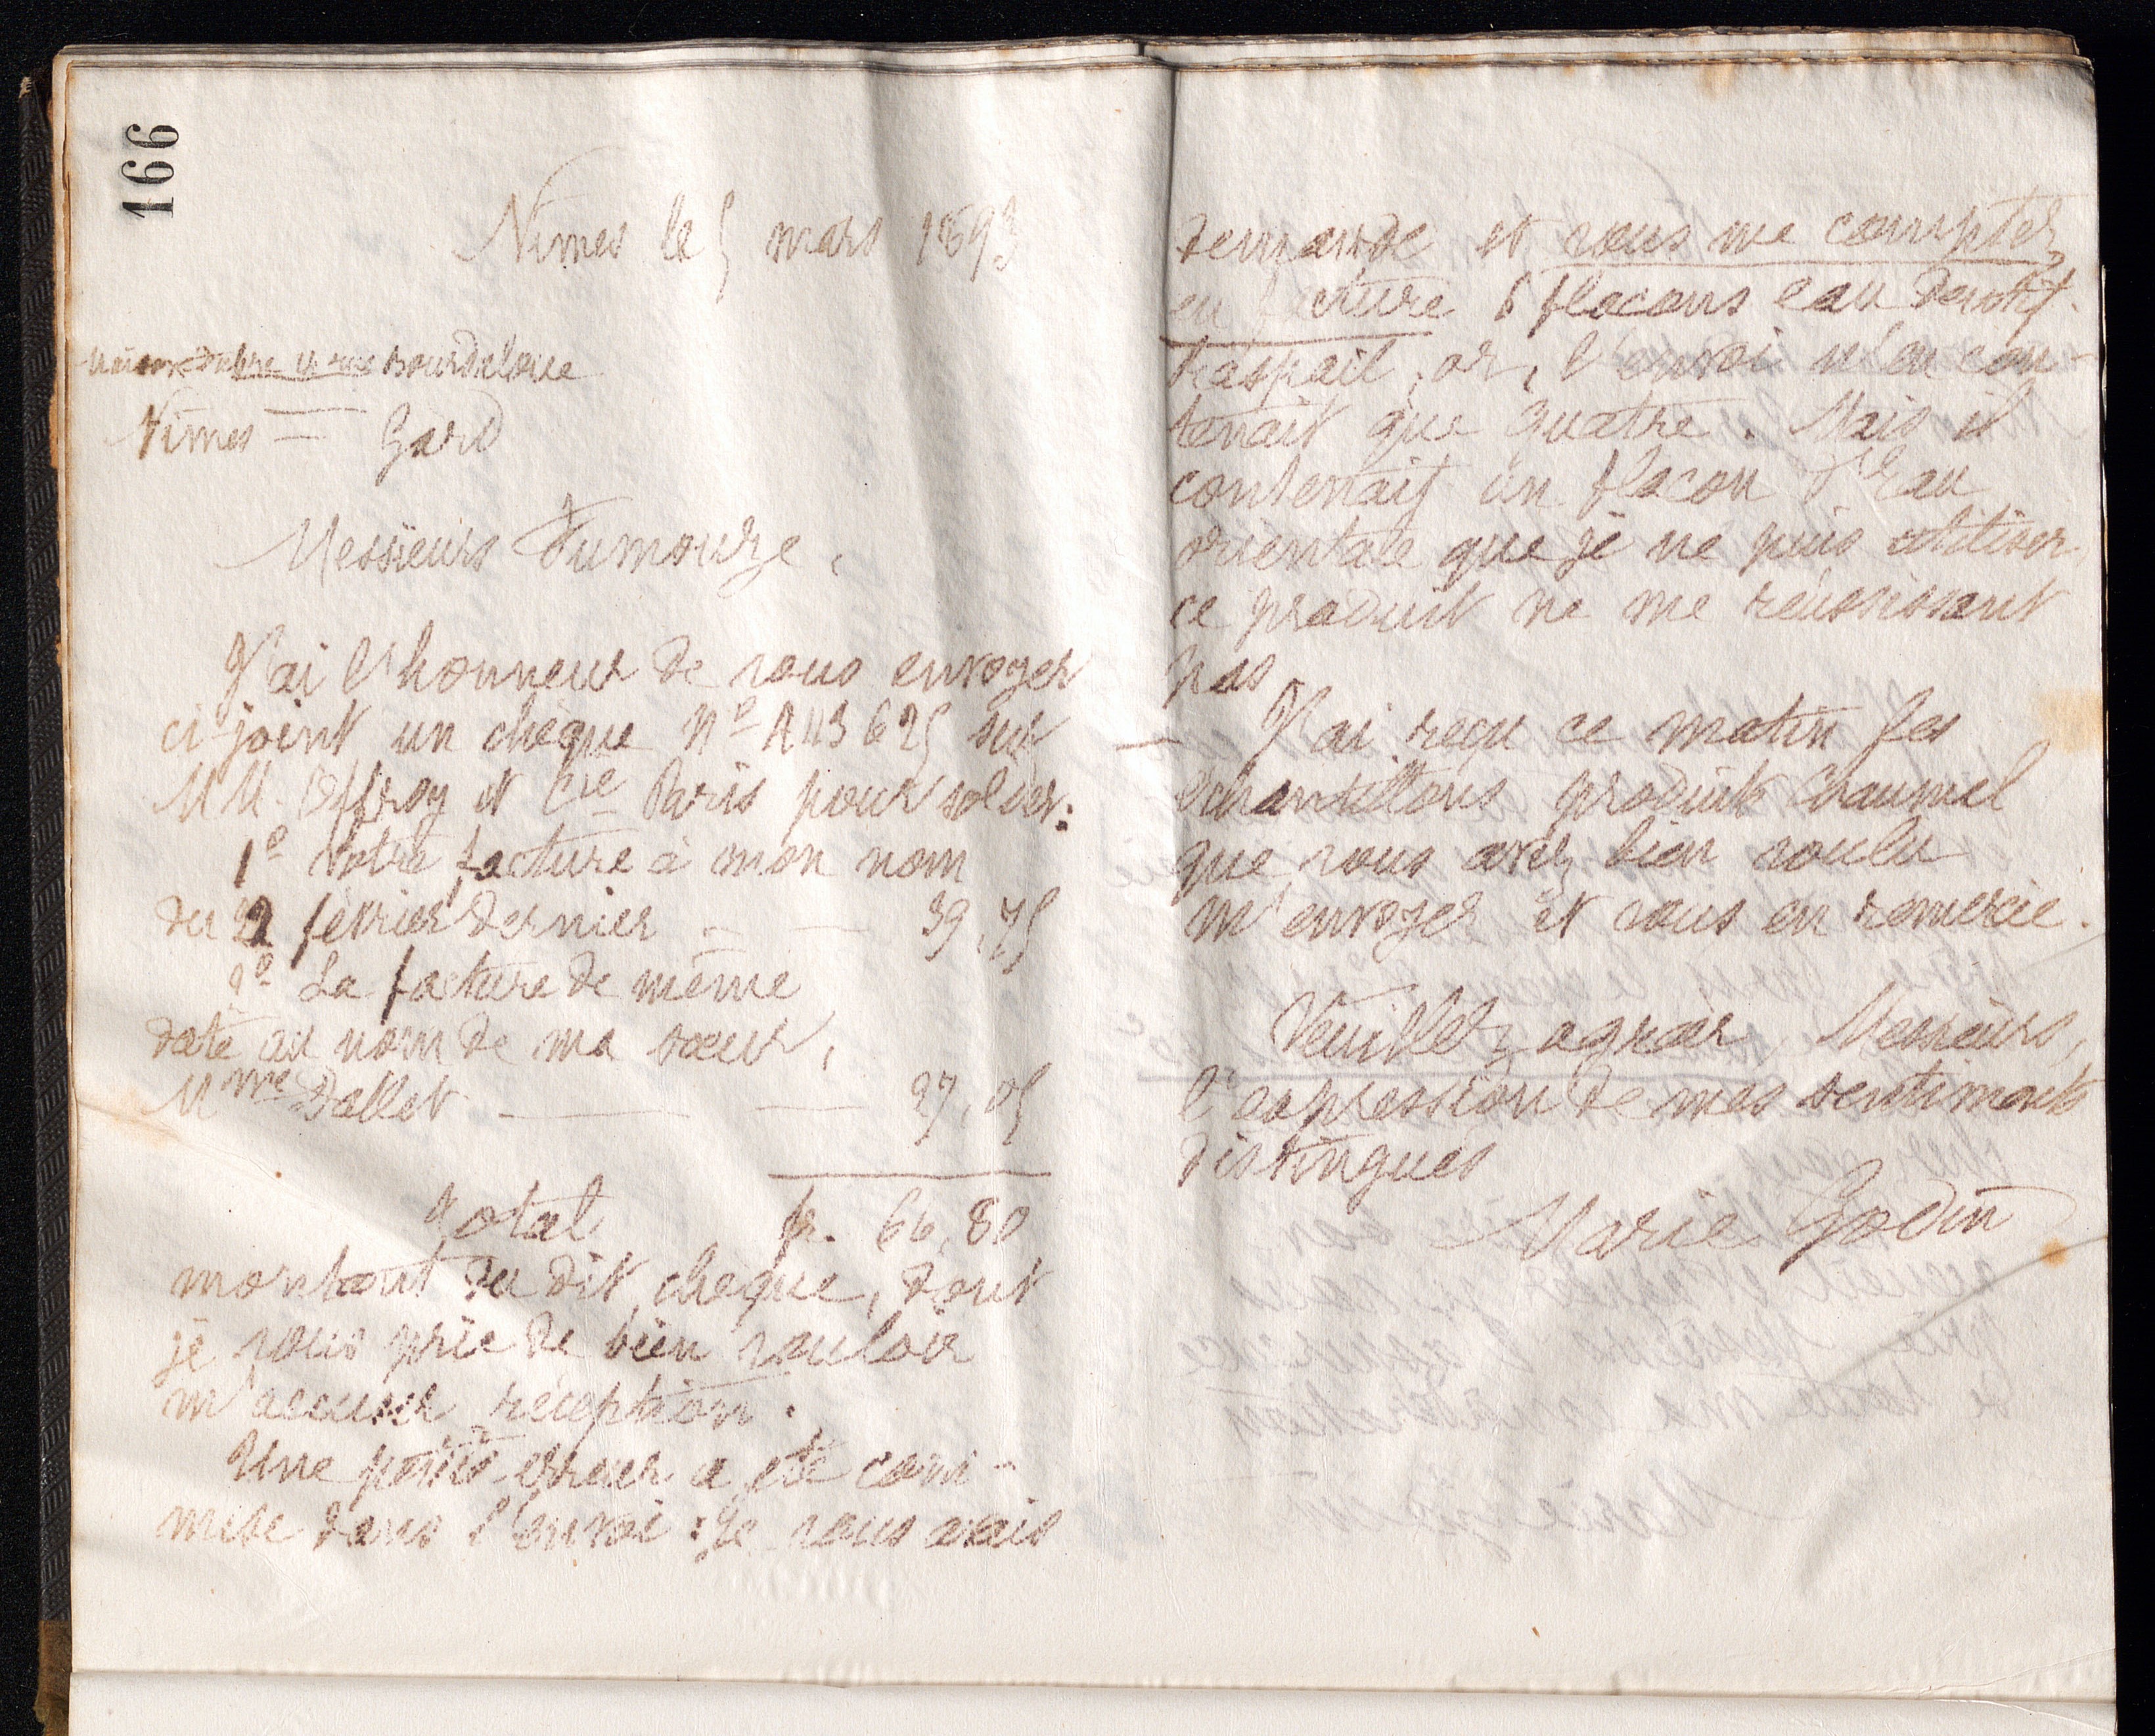 166
Nimes le 5 mars 1893
maison Fabre 11 rue Bourdaloue
Nîmes = Gard
Messieurs Fumouze,
J'ai l'honneur de vous envoyer
ci-joint un chèque n° A 43 625 sur
MM. Offroy et Cie Paris pour solder:
1° Votre facture à mon nom
du 22 février dernier — 39,75
2° La facture de même
date au nom de ma soeur,
Mme Dallet — — 27,05
Total fr. 66,80
montant du dit chèque, dont
je vous prie de bien vouloir
m'accuser réception.
Une petite erreur a été com-
mise dans l'envoi : Je vous avais
demandé et vous me comptez
en facture 6 flacons eau dentif.
Raspail, or, l'envoi n'en con-
tenait que quatre. Mais il
contenait un flacon d'Eau
orientale que je ne puis utiliser,
ce produit ne me réussissant
pas.
— J'ai reçu ce matin les
échantillons produits Chaumel
que vous avez bien voulu
m'envoyer et vous en remercie.
Veuillez agréer, Messieurs,
l'expression de mes sentiments
distingués
Marie Godin